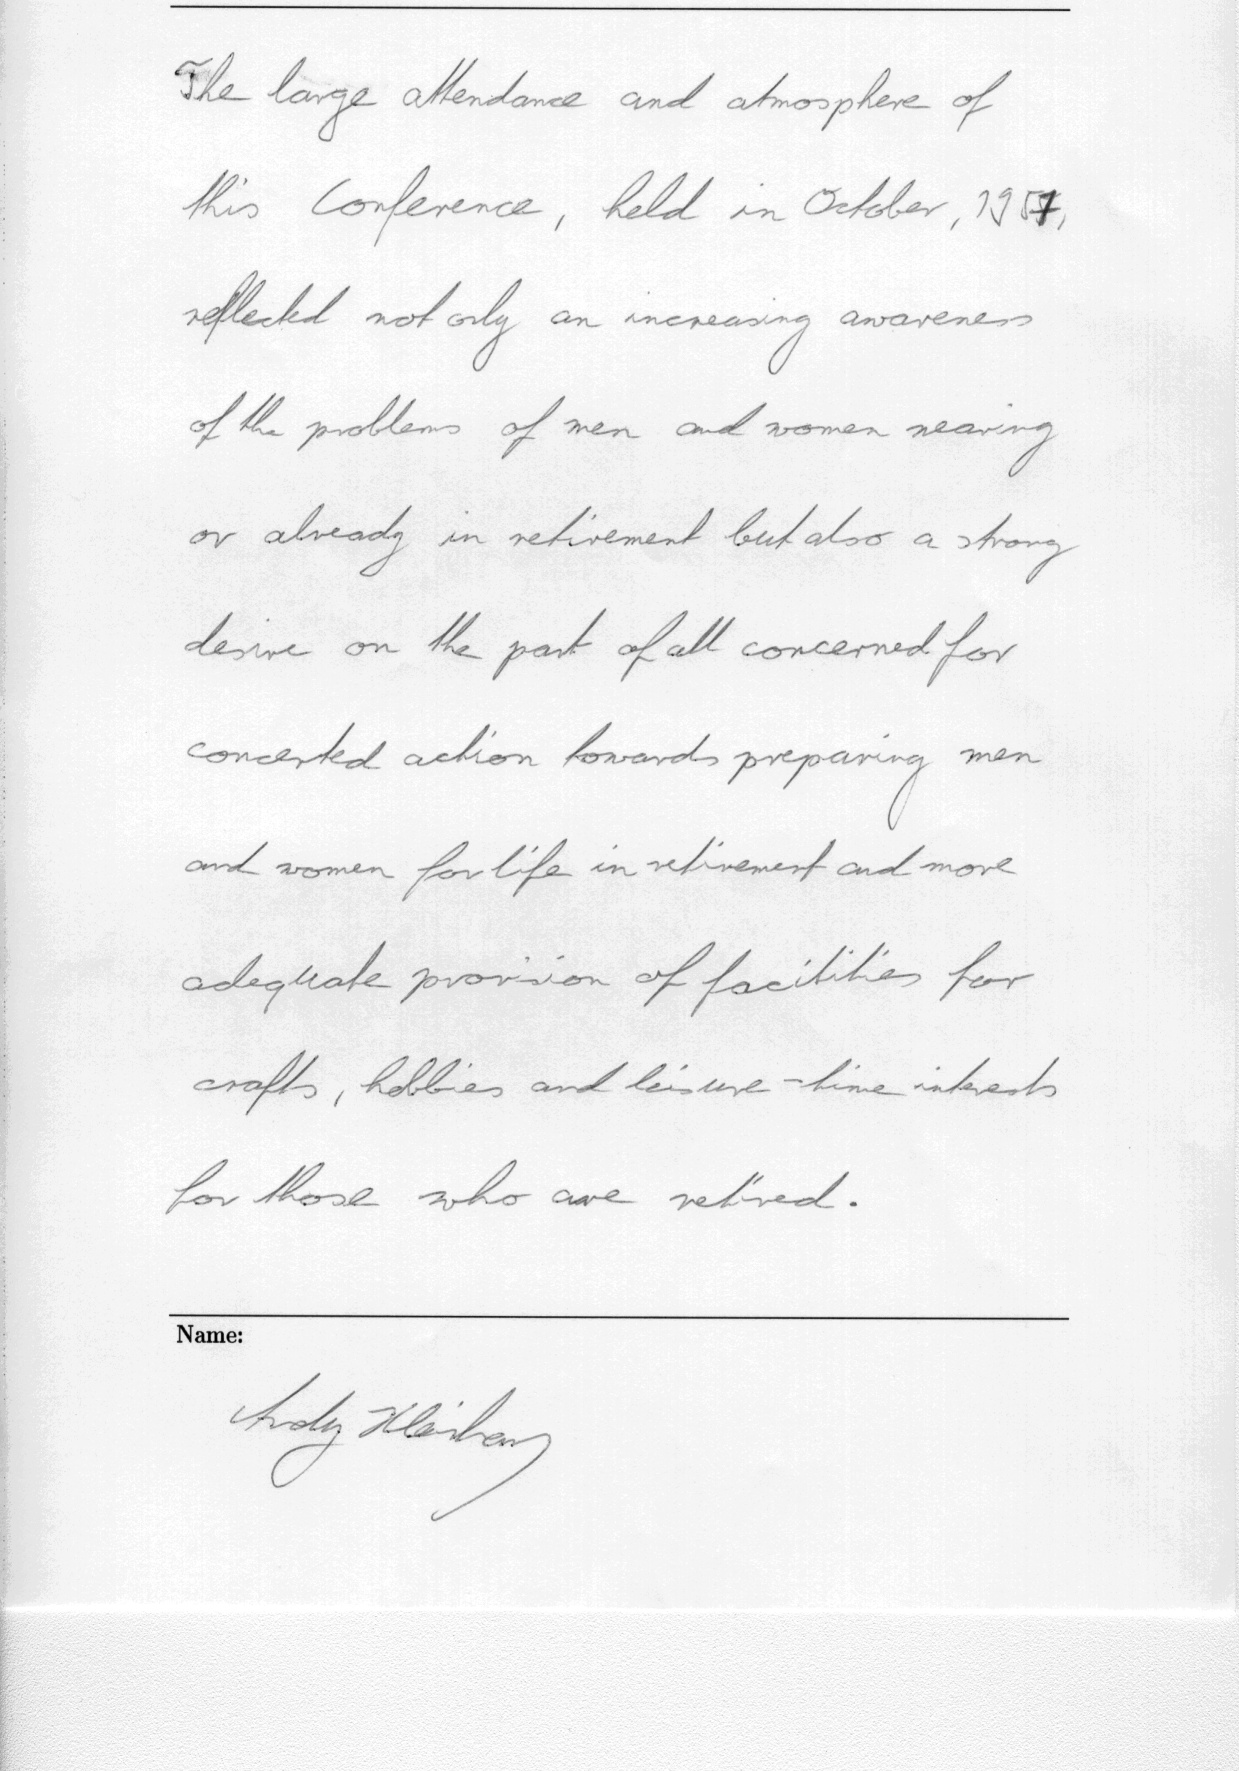 The large attendance and atmosphere of
this Conference, held in October, 1957,
reflected not only an increasing awareness
of the problems of men and women nearing
or already in retirement but also a strong
desire on the part of all concerned for
concerted action towards preparing men
and women for life in retirement and more
adequate provision of facilities for
crafts, hobbies and leisure-time interests
for those who are retired.
Name:
Andy